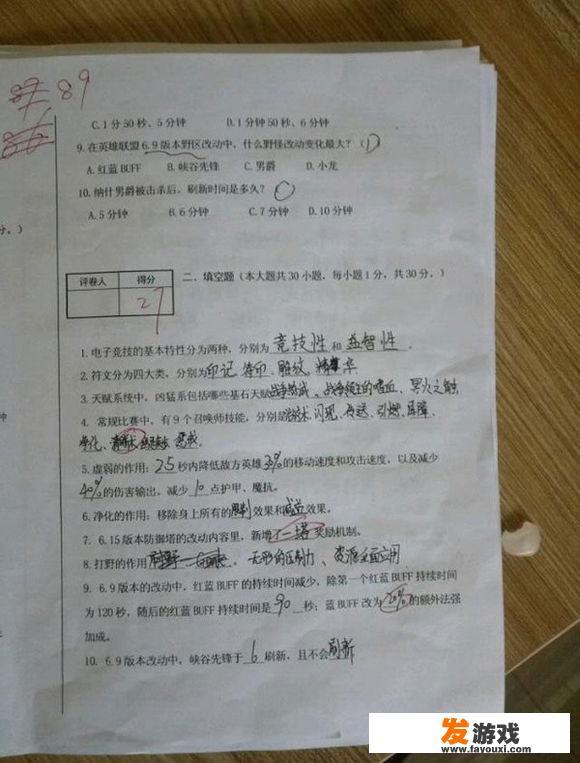 89
C.1分50秒、5分钟 D.1分钟50秒、6分钟
9.在英雄联盟6.9版本野区改动中，什么野怪改动变化最大？（ ）
A.红蓝BUFF B.峡谷先锋 C.男爵 D.小龙
10.纳什男爵被击杀后，刷新时间是多久？（ ）
A.5分钟 B.6分钟 C.7分钟 D.10分钟
分。）
评卷人 得分
27
二、填空题（本大题共30小题，每小题1分，共30分。）
1.电子竞技的基本特性分为两种，分别为 竞技性 和 益智性 。
2.符文分为四大类，分别为印记、符印、雕纹、精华
3.天赋系统中，凶猛系包括哪些基石天赋战争热诚、战争领主的嗜血、冥火之触
4. 常规比赛中，有9个召唤师技能，分别是治疗术、闪现、传送、引燃、屏障、
净化、清晰术、惩戒
5.虚弱的作用：2.5秒内降低敌方英雄30%的移动速度和攻击速度，以及减少
40%的伤害输出，减少10点护甲、魔抗。
6.净化的作用：移除身上所有的限制效果和减益效果。
7. 6.15版本防御塔的改动内容里，新增了一塔奖励机制。
8.打野的作用 无形的压制力、资源全面应用
9. 6.9版本的改动中，红蓝BUFF的持续时间减少，除第一个红蓝BUFF持续时间
为120秒，随后的红蓝BUFF持续时间是90秒；蓝BUFF改为20%的额外法强
加成。
10. 6.9版本改动中，峡谷先锋于 6 刷新，且不会刷新
钟
发游戏
www.fayouxi.com